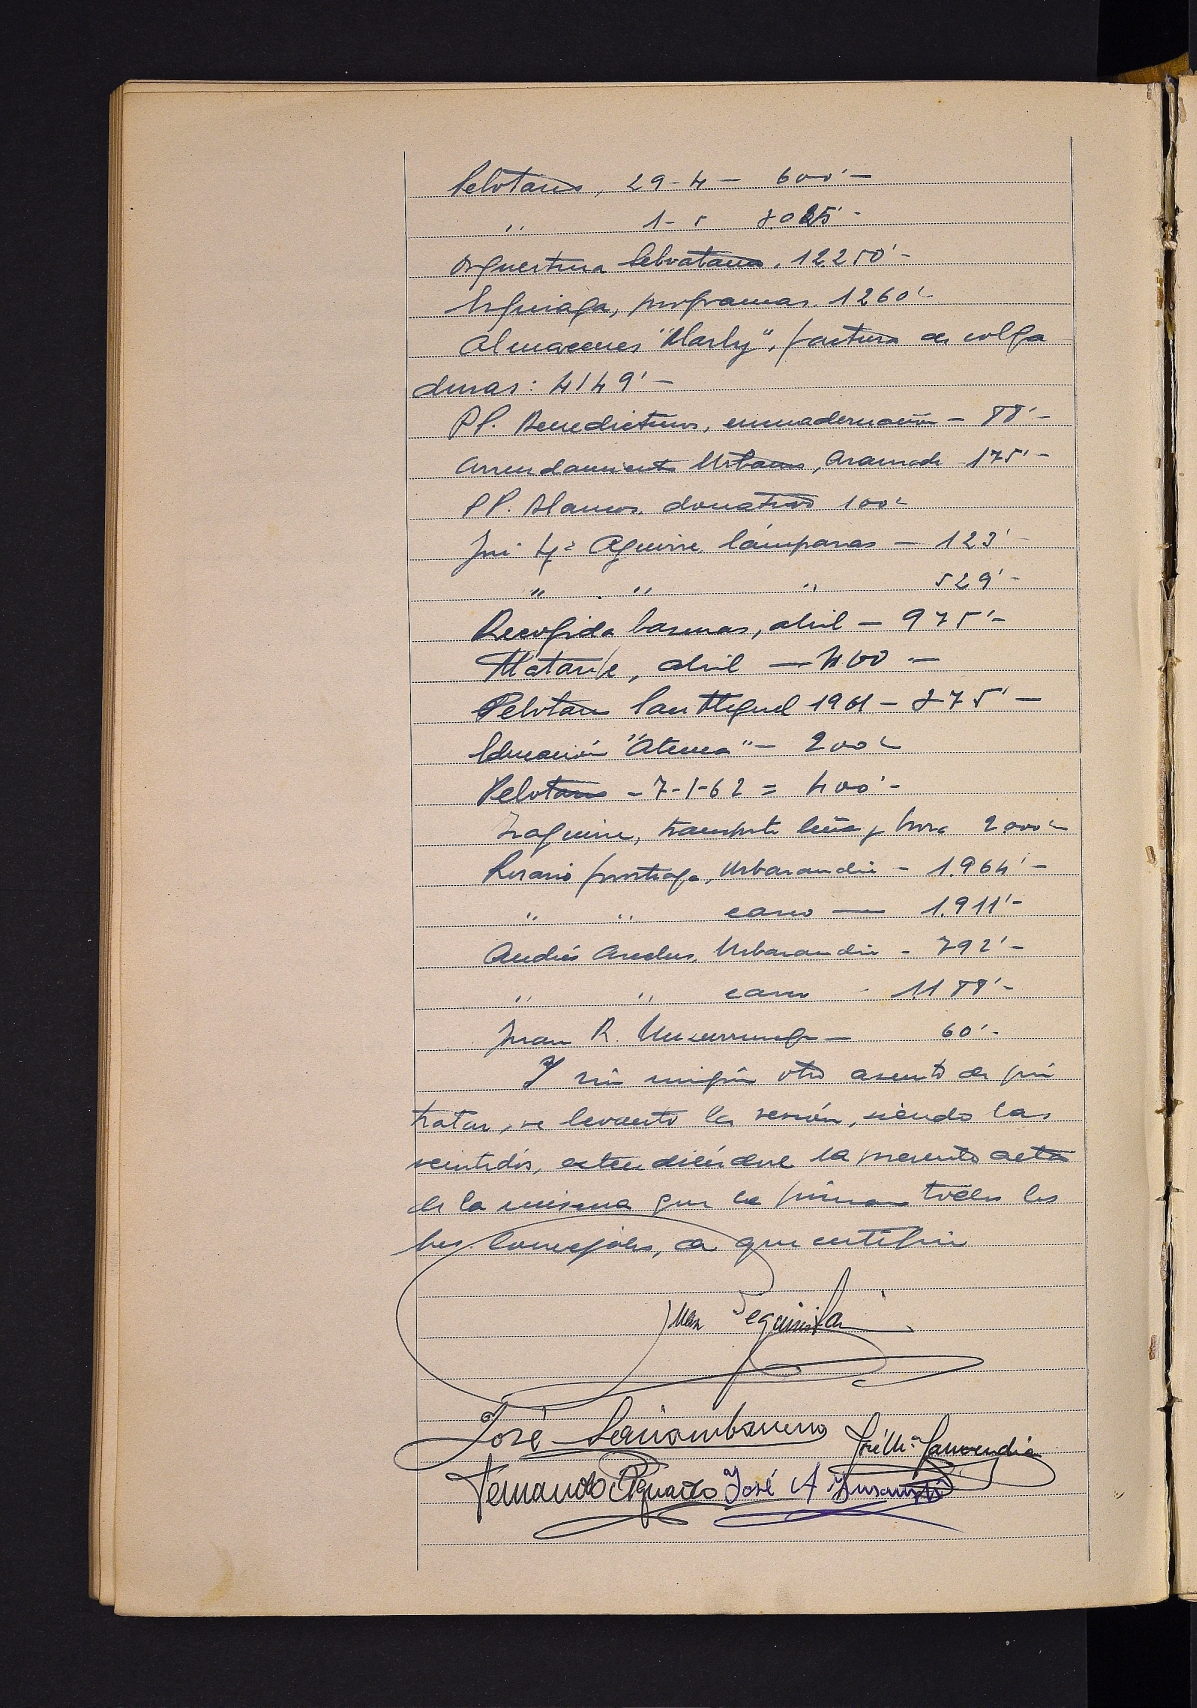 Pelotaris, 29-4 — 600'—
" 1-5
Orquestina 12250'-
programas. 1260'-
Almacenes "Marly", factura de colga
duras: 4149'—
PP. Benedictinos, encuadernación — 88'—
Arrendamientos Urbanos, Aramode 175'—
PP. Blancos, donativo 100'-
José Mª Aguirre, lámparas — 123'-
" " " 529'-
Recogida basuras, abril — 975'-
Matarife, abril — 400 —
Pelotaris San Miguel 1961 — 875'—
Educación "Atenea" — 200'-
Pelotaris - 7-1-62 = 400'-
Izaguirre, transporte leña y 2000'-
Rosario Urbarandin - 1.964'-
" " casco — 1.911'-
Andrés Urbarandin - 792'-
" " casco - 1188'-
Juan R. — 60'-
Y sin ningún otro asunto de que
tratar, se levantó la sesión, siendo las
veintidós, extendiéndose la presente acta
de la misma que la firman todos los
Sres. Concejales, de que certifico
Juan
José
José Mª
Fernando José A